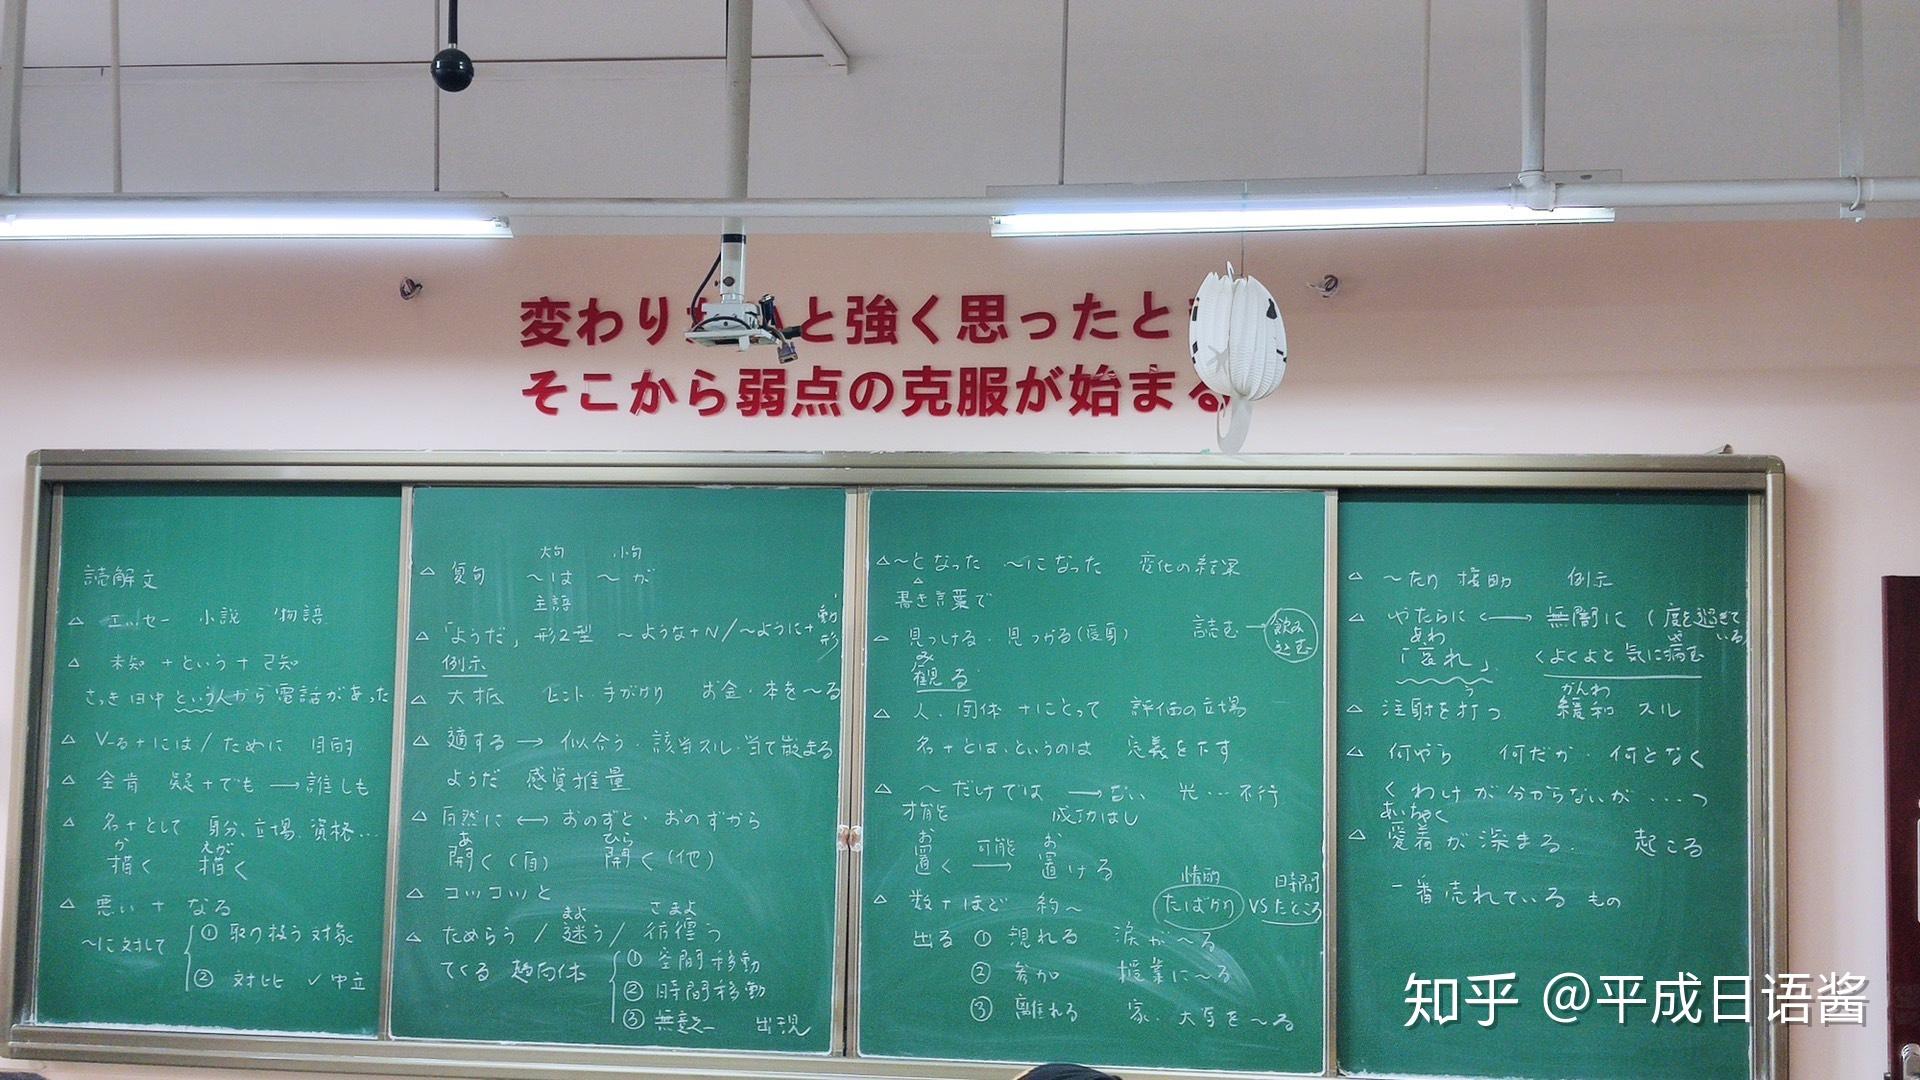 変わり と強く思ったと
そこから弱点の克服が始まる
読解文
△ エッセー 小説 物語
△ 未知 +という+ 已知
さっき田中という人から電話があった
△ V-る+には/ために 目的
△ 全肯 疑+でも → 誰しも
△ 名+として 自分、立場、資格…
か えが
描く 描く
△ 悪い + なる
~に対して ① 取り扱う対象
② 対比 ✓中立
大句 小句
△ 复句 ~は ~が
主語
△「ようだ」形2型 ~ような+N/~ように+動形
例示
△ 大抵 ヒント・手がかり お金・本を~る
△ 適する → 似合う・該当スル・当て嵌まる
ようだ 感覚推量
△ 自然に ↔ おのずと・おのずから
あ ひら
開く(自) 開く(他)
△ コツコツと
まよ さまよ
△ ためらう / 迷う / 彷徨う
てくる 趋向体 ① 空間移動
② 時間移動
③ 無意志 出現
△~となった ~になった 変化の結果
書き言葉で
△ 見つける・見つかる 読む → 飲み込む
み
観る
△ 人・団体 +にとって 評価の立場
名+とは、というのは 定義を下す
△ ~だけでは → ない 光…不行
才能を 成功はし
お 可能 お
置く → 置ける
△ 数+ほど 約~
情的 時間
たばかり VS たところ
出る ① 現れる 涙が~る
② 参加 授業に~る
③ 離れる 家・大学を~る
△ ~たり 接助 例示
△ やたらに ↔ 無闇に (度を過ぎている)
あわ
「哀れ」 くよくよと気に病む
う かんわ
△ 注射を打つ 緩和 スル
△ 何やら 何だか・何となく
くわけが分からないが……つ
あいちゃく
△ 愛着が深まる. 起こる
一番売れている もの
知乎 @平成日语酱